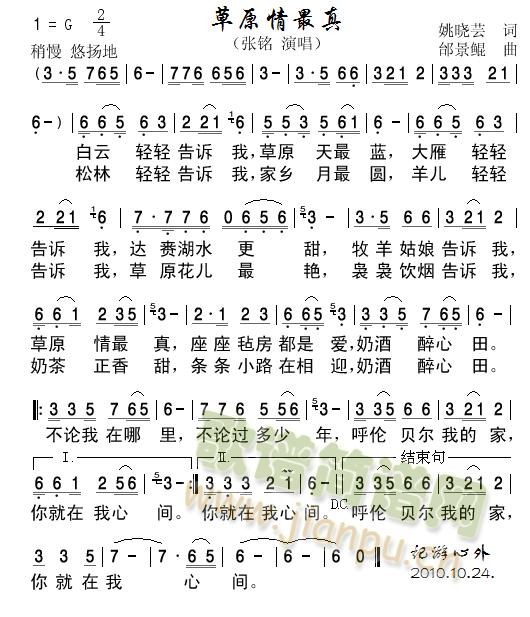 草原情最真
1=G 2/4
稍慢 悠扬地
(张铭 演唱)
姚晓芸 词
邰景鲲 曲
(3·5 765 | 6- | 776 656 | 3·5 66 | 321 2 | 333 21 |
6-) | 665 | 333 | 2 21 6 | 553 561 | 665 | 333 |
白云 轻轻 告诉 我,草原 天最 蓝, 大雁 轻轻
松林 轻轻 告诉 我,家乡 月最 圆, 羊儿 轻轻
2 21 6 | 7·776 | 0656 | 53- | 335 | 765 | 2 21 6 |
告诉 我, 达 赉湖水 更 甜, 牧羊 姑娘 告诉 我,
告诉 我, 草 原花儿 最 艳, 袅袅 饮烟 告诉 我,
661 | 235 | 53- | 2·1 | 23 666 | 335 | 765 | 6- |
草原 情最 真, 座座 毡房 都是 爱,奶酒 醉心 田。
奶茶 正香 甜, 条条 小路 在相 迎,奶酒 醉心 田。
335 | 765 | 6- | 776 | 2 56 | 53- | 335 66 | 321 2 |
不论我 在哪 里,不论过 多少 年, 呼伦 贝尔 我的 家,
I. II. 结束句
661 | 2 56 | 53- | 661 | 332 | 1- | 335 66 | 321 2 |
D.C.
你就在 我心 间。 你就在 我心 间。呼伦 贝尔 我的 家,
3 3 | 3 56 | 7- | 7·65 | 6- | 6- |
你 就 在 我 心 间。
记游心外
2010.10.24.
歌谱简谱网
www.jianpu.cn